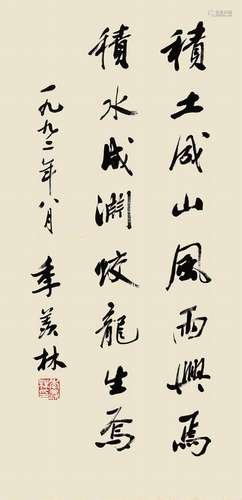 積土成山風雨興焉
積水成淵蛟龍生焉
一九九二年八月
季羡林